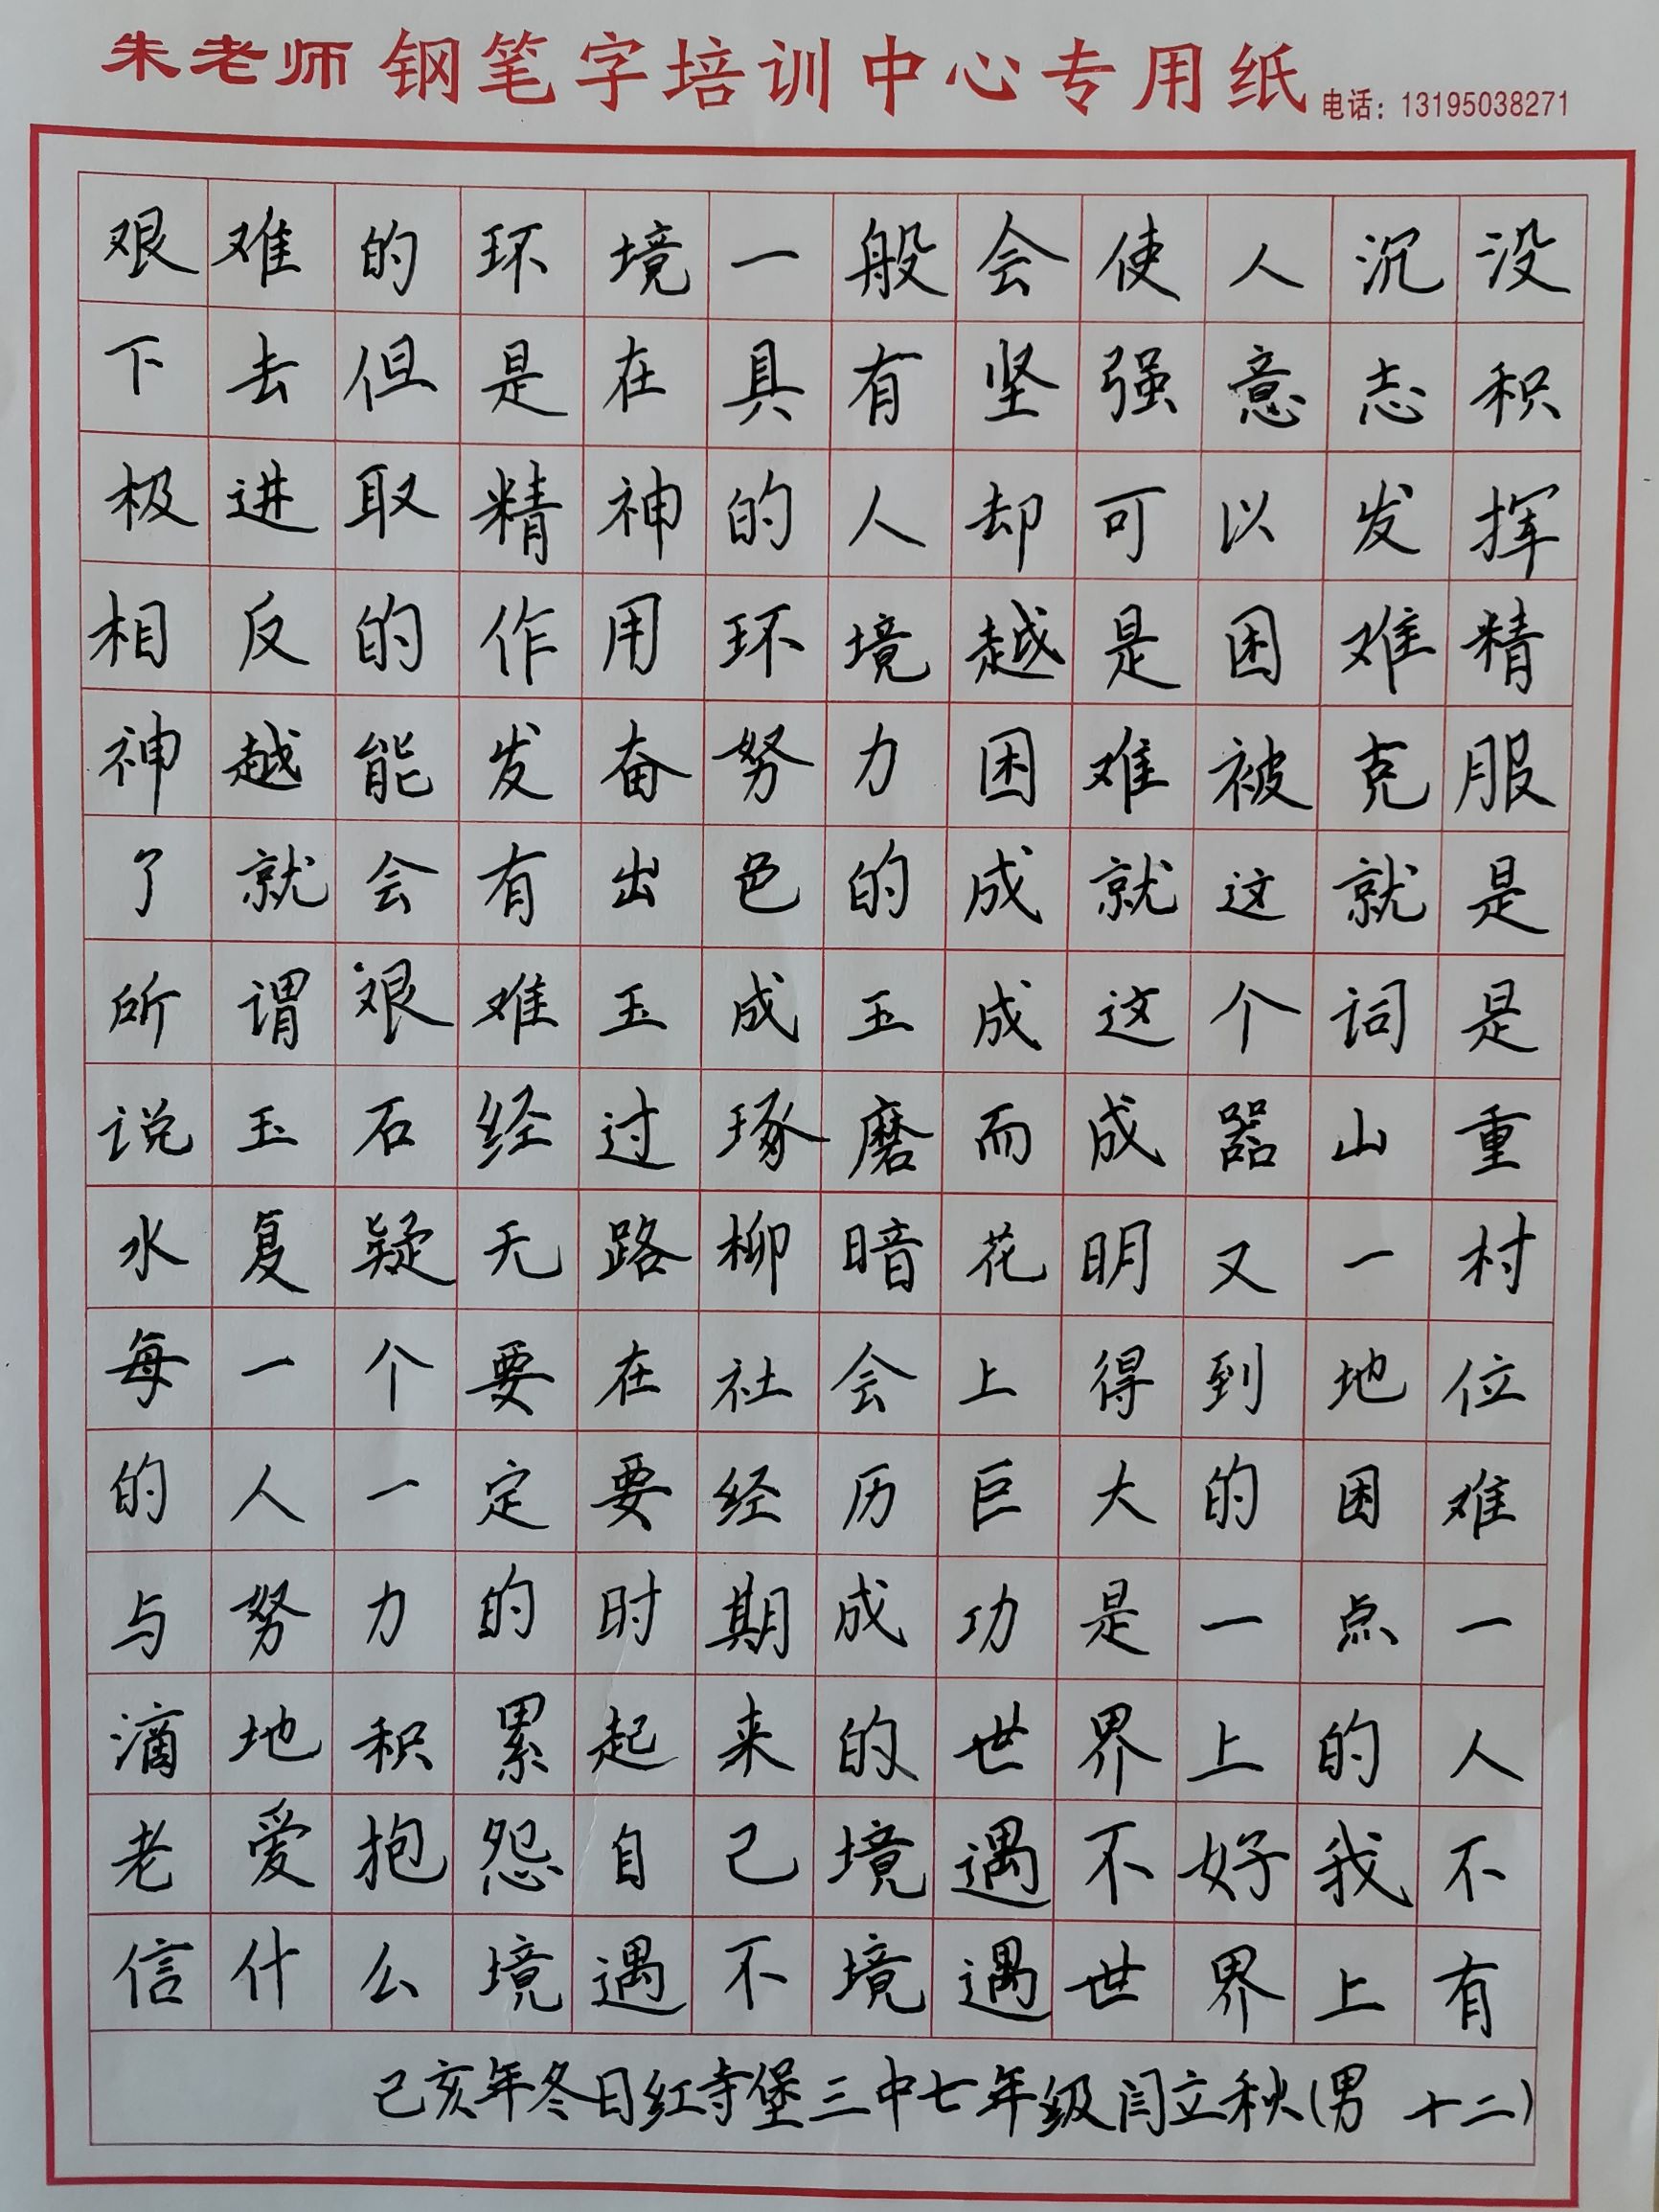 朱老师 钢笔字培训中心专用纸 电话：13195038271
艰难的环境一般会使人沉没
下去但是在具有坚强意志积
极进取精神的人却可以发挥
相反的作用环境越是困难精
神越能发奋努力困难被克服
了就会有出色的成就这就是
所谓艰难玉成玉成这个词是
说玉石经过琢磨而成器山重
水复疑无路柳暗花明又一村
每一个要在社会上得到地位
的人一定要经历巨大的困难
与努力的时期成功是一点一
滴地积累起来的世界上的人
老爱抱怨自己境遇不好我不
信什么境遇不境遇世界上有
己亥年冬日红寺堡三中七年级闫立秋(男 十二)